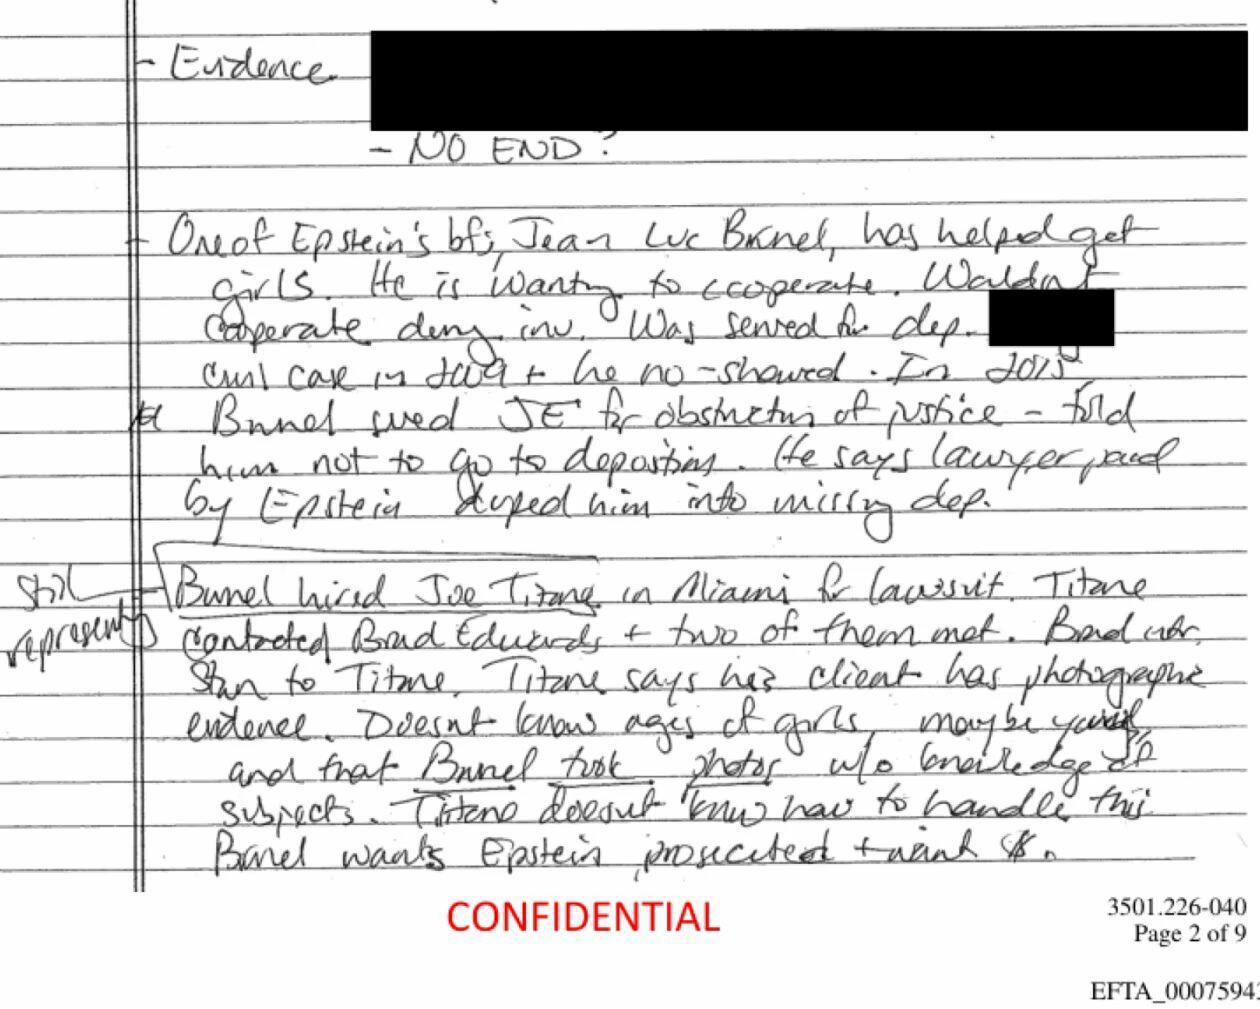 - Evidence
- NO END?
- One of Epstein's bfs, Jean Luc Brunel, has helped get
girls. He is wanting to cooperate. Wouldn't
cooperate during inv. Was served for dep.
civil case in 2009 + he no-showed. In 2015,
Brunel sued JE for obstruction of justice - told
him not to go to deposition. He says lawyer paid
by Epstein duped him into missing dep.
Still representing
- Brunel hired Joe Titone in Miami for lawsuit. Titone
contacted Brad Edwards + two of them met. Brad
Stan to Titone. Titone says his client has photographic
evidence. Doesn't know ages of girls, maybe young,
and that Brunel took photos w/o knowledge of
subjects. Titone doesn't know how to handle this
Brunel wants Epstein prosecuted + want $.
CONFIDENTIAL
3501.226-040
Page 2 of 9